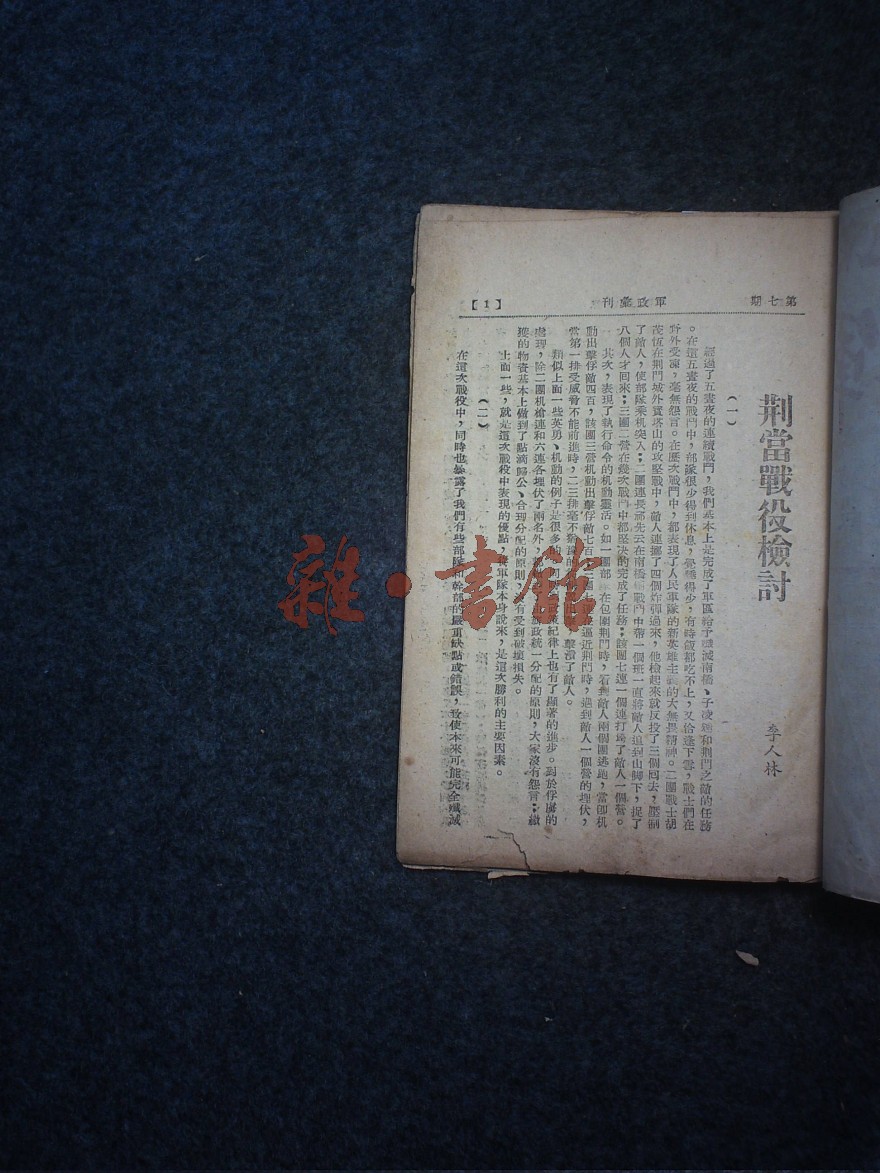 第七期
軍政彙刊
【1】
荆當戰役檢討
李人林
(一)
經過了五晝夜的連續戰鬥，我們基本上是完成了軍區給予殲滅南橋、子陵
和荆門之敵的任務
。在這五晝夜的戰鬥中，部隊很少得到休息，覺睡得少，有時飯都吃不上，又恰逢下雪，戰士們在
野外受凍，毫無怨言。在歷次戰鬥中，都表現了人民軍隊的新英雄主義的大無畏精神。二團戰士胡
茂恆在荆門城外寶塔山的攻堅戰中，敵人連擲了四個炸彈過來，他檢起來就反投了三個回去，壓制
了敵人，使部隊乘机突入；二團連長
先云在南橋
戰鬥中帶一個班一直將敵人追到山脚下，捉了
八個人才回來；三團二營在幾次戰鬥中都堅决的完成了任務；該團七連一個連打
了敵人一個營。
其次，表現了執行命令的机動靈活。如一團部
在包圍荆門時，看到敵人兩個團逃跑，當卽机
動出擊俘敵四百，該團三營机動出擊俘敵七百
逼近荆門時，遇到敵人一個營的埋伏，
當第一排受威脅不能前進時，二三排毫不猶豫的
擊潰了敵人。
類似上面一些英勇、机動的例子是很多的
紀律上也有了顯著的進步。對於俘虜的
處理，除二團机槍連和六連各埋伏了兩名外，
政統一分配的原則，大家沒有怨言；繳
獲的物資基本上做到了點滴歸公、合理分配的原則，
有受到破壞損失。
上面一些，就是這次戰役中表現的優點，
軍隊本身說來，是這次勝利的主要因素。
(二)
在這次戰役中，同時也暴露了我們有些部隊和幹部的嚴重缺點或錯誤，致使本來可能完全殲滅
雜·書館